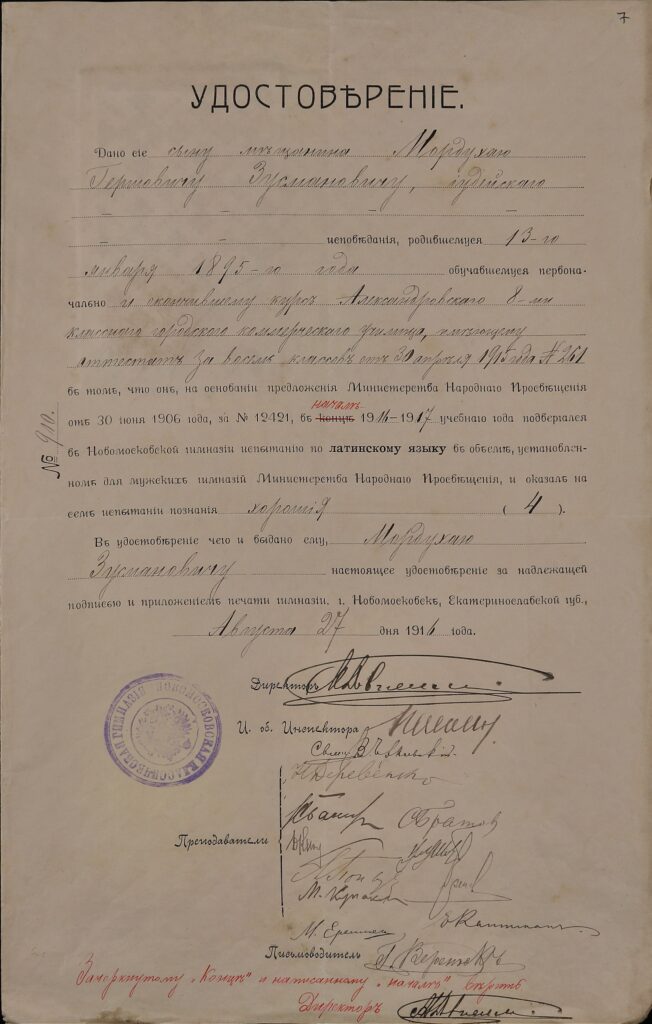 7
УДОСТОВѢРЕНІЕ.
Дано сіе сыну мѣщанина Мордухаю
Гершовичу Зусмановичу, іудейскаго
исповѣданія, родившемуся 13-го
января 1895-го года обучавшемуся первона-
чально и окончившему курсъ Александровскаго 8-ми
класснаго городского коммерческаго училища, имѣющему
аттестатъ за восемь классовъ отъ 30 апрѣля 1915 года № 261
въ томъ, что онъ, на основаніи предложенія Министерства Народнаго Просвѣщенія
началѣ
отъ 30 іюня 1906 года, за № 12421, въ концѣ 1916-1917 учебнаго года подвергался
въ Новомосковской гимназіи испытанію по латинскому языку въ объемѣ, установлен-
номъ для мужскихъ гимназій Министерства Народнаго Просвѣщенія, и оказалъ на
семъ испытаніи познанія хорошія ( 4 ).
Въ удостовѣреніе чего и выдано ему, Мордухаю
Зусмановичу настоящее удостовѣреніе за надлежащей
подписью и приложеніемъ печати гимназіи. г. Новомосковскъ, Екатеринославской губ.,
Августа 27 дня 1916 года.
№ 910.
Директоръ
НОВОМОСКОВСКАЯ КЛАССИЧЕСКАЯ ГИМНАЗІЯ
И. об. Инспектора
Преподаватели
Письмоводитель
Зачеркнутому „концѣ" и написанному „началѣ" вѣрить
Директоръ